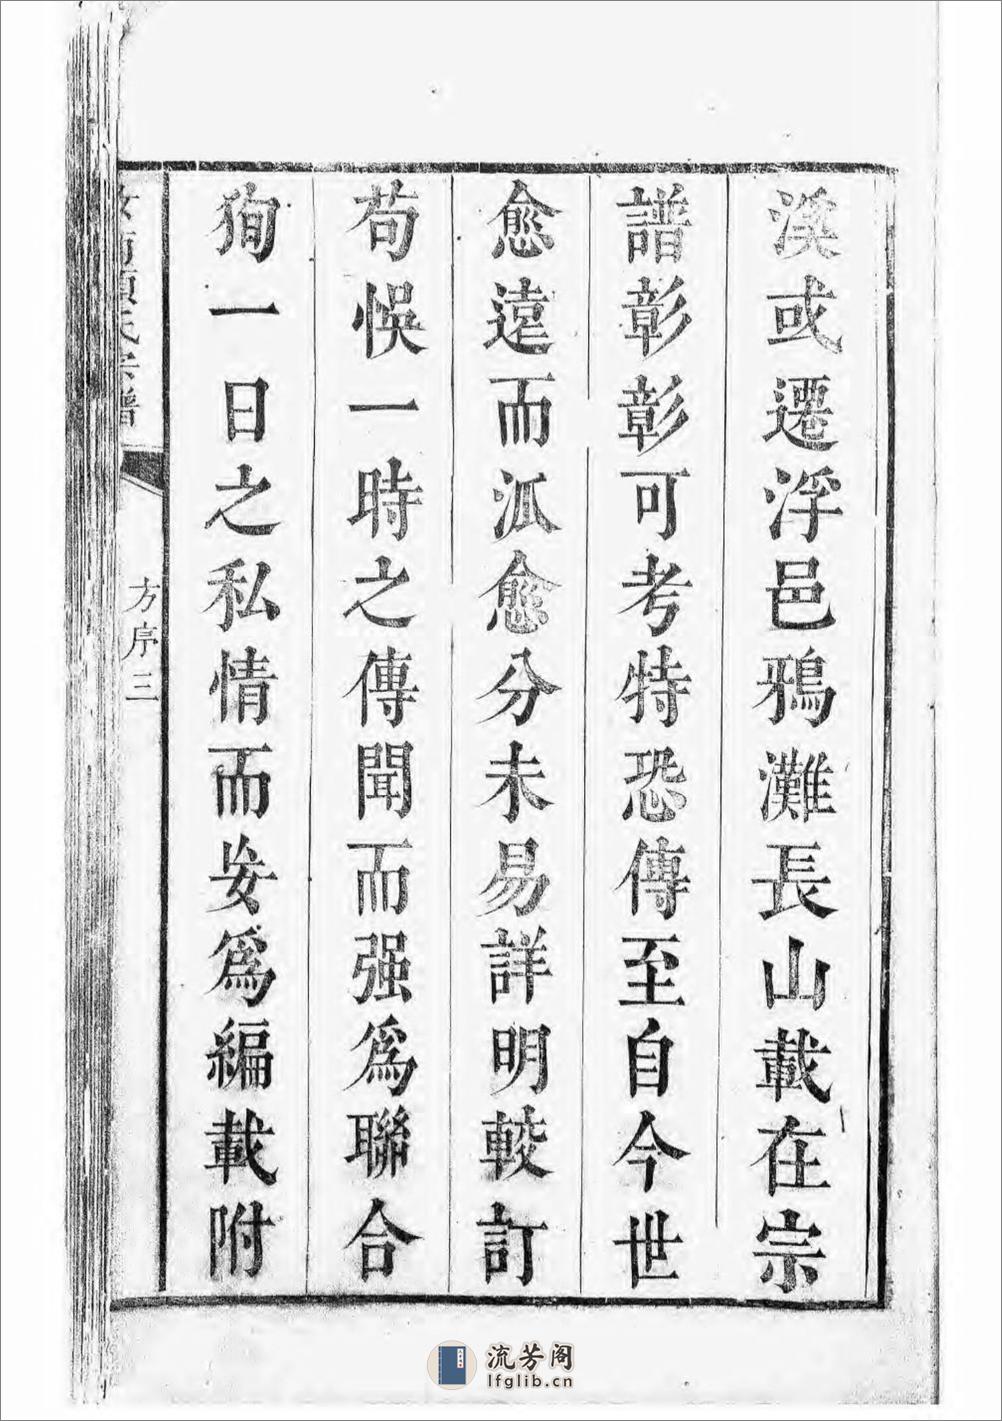 溪或遷浮邑鴉灘長山載在宗
譜彰彰可考特恐傳至自今世
愈遠而泒愈分未易詳明較訂
苟悞一時之傳聞而强爲聯合
狥一日之私情而妄爲編載附
氏宗譜
方序三
流芳阁
lfglib.cn